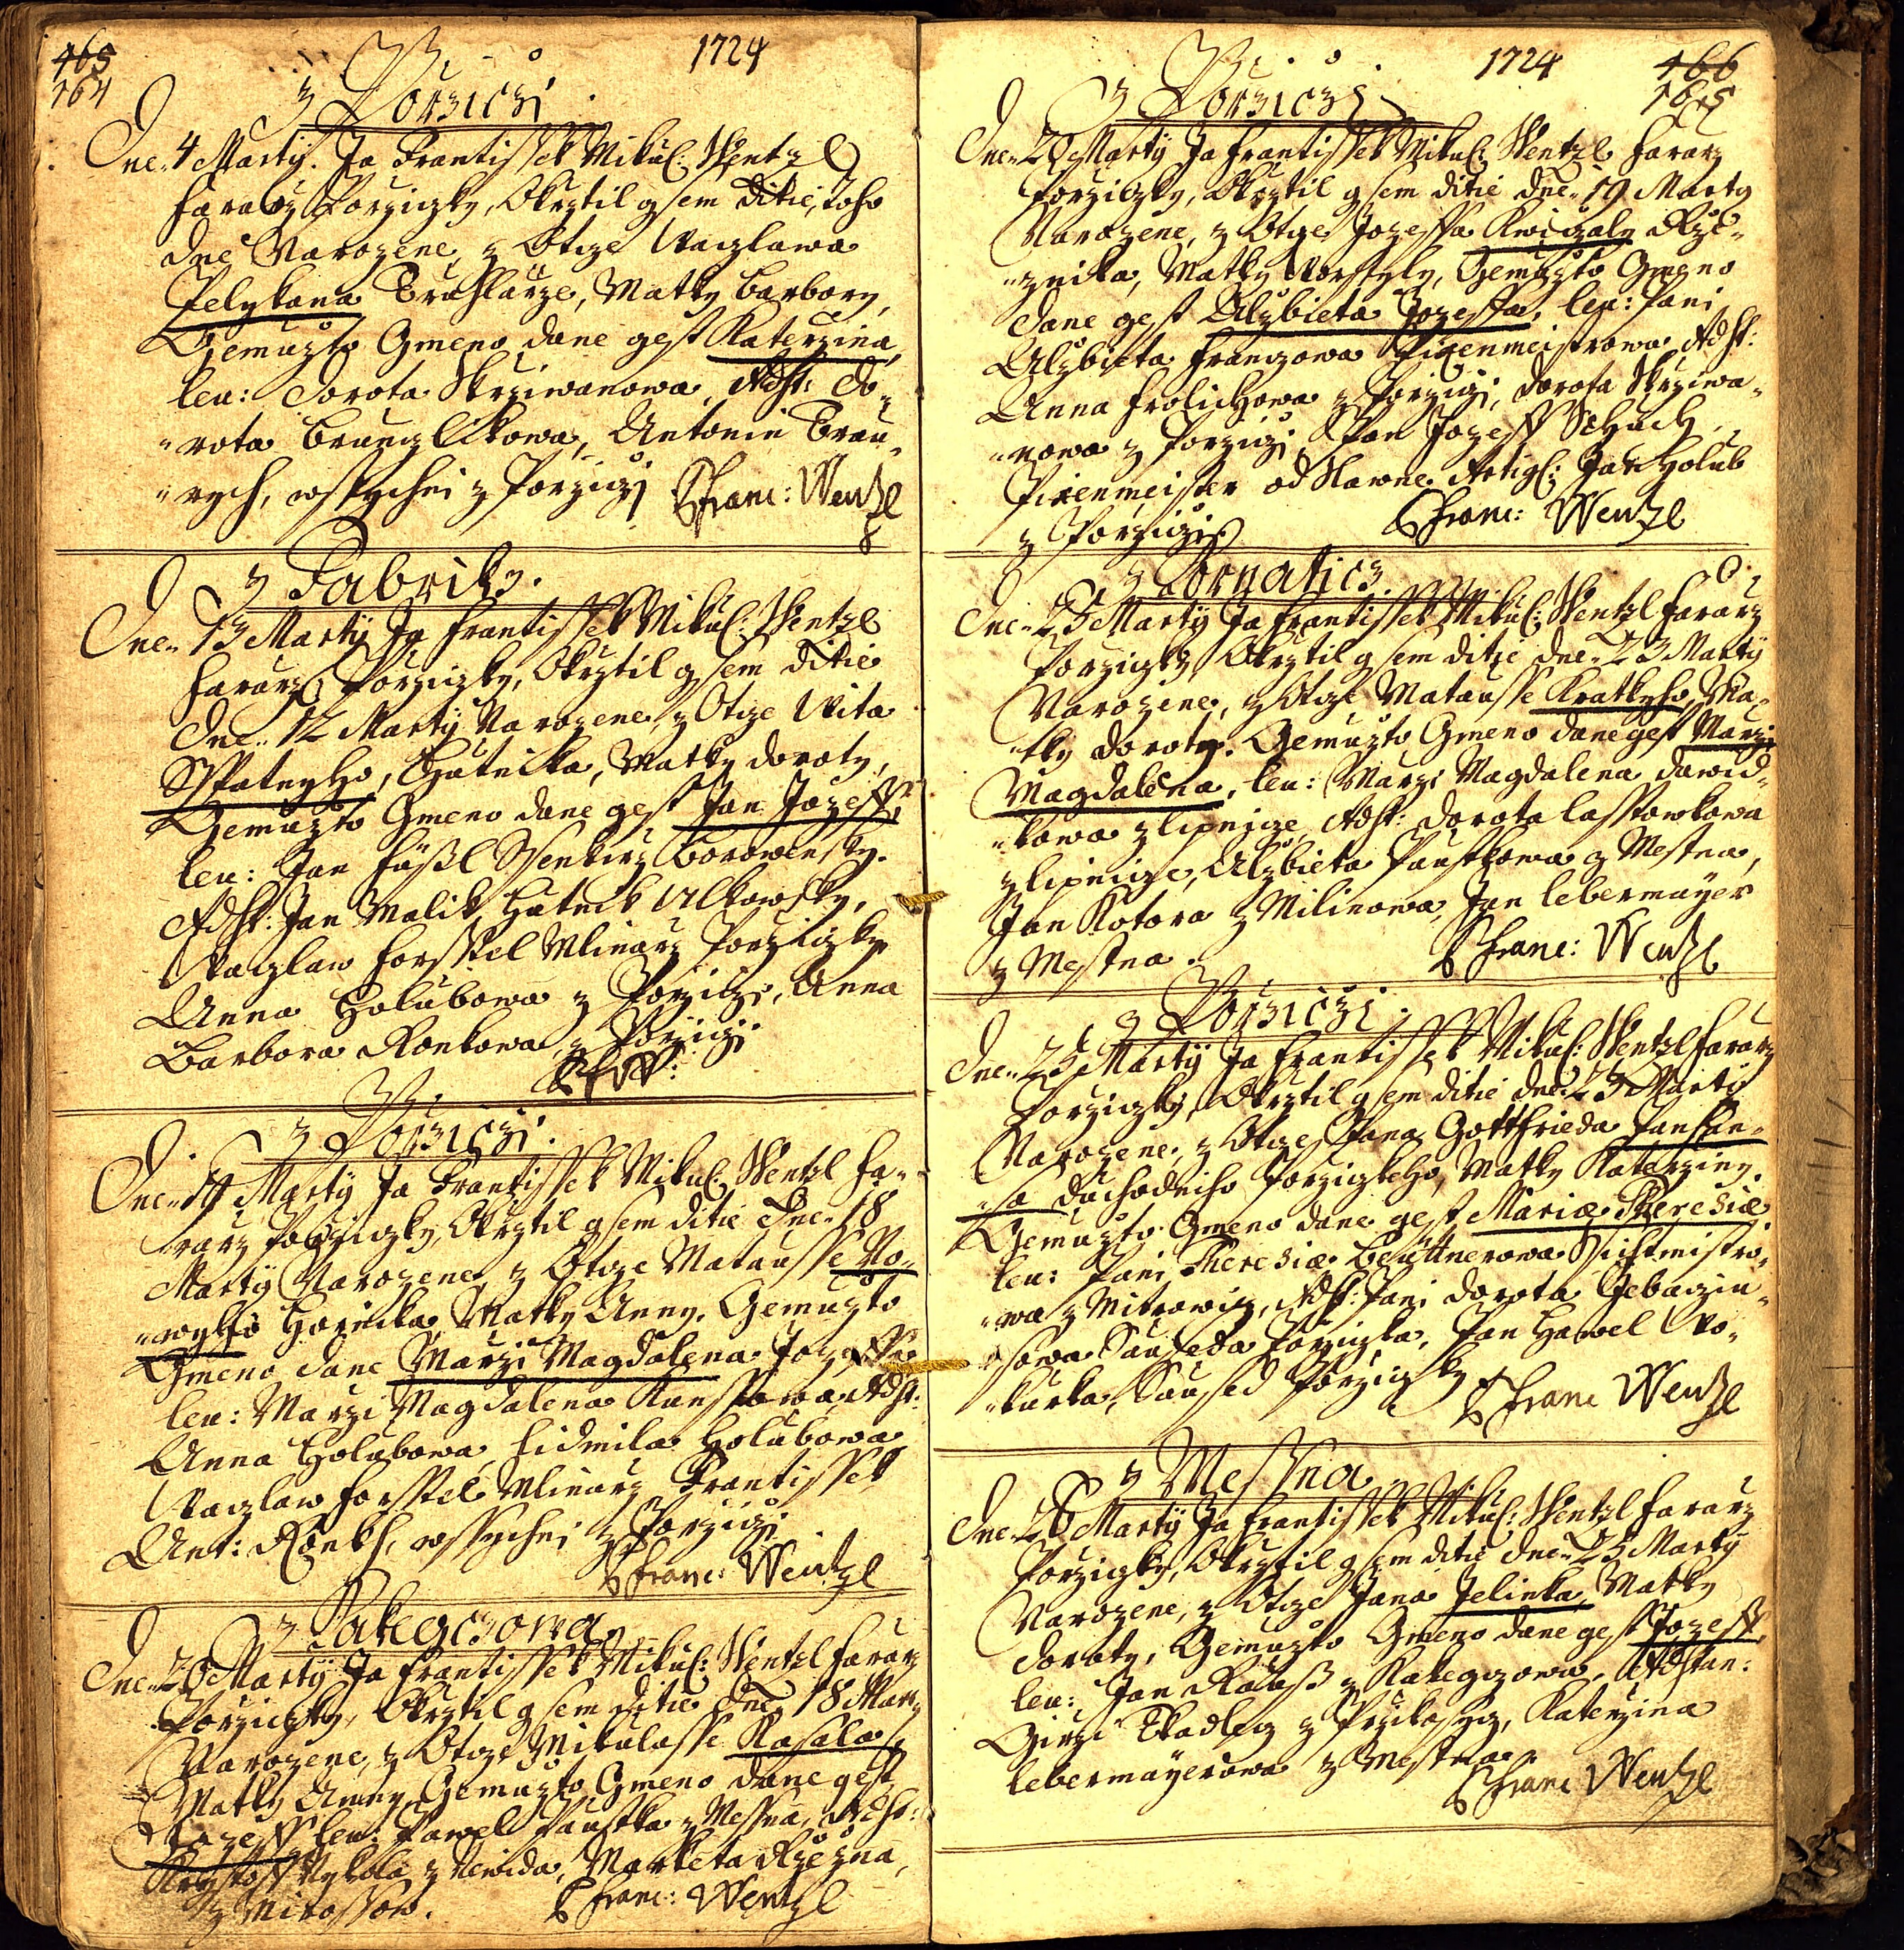 465
164
1724
z Porziczi
Dne 4 Martÿ. Ja Frantissek Mikul: Wentzl
Fararz Porziczky, Okrztil gsem ditie, toho
dne Narozene, z Otcze Waczlawa
Pelykana Truhlarze, Matky Barbory,
Gemuzto Gmeno dane gest Katerzina,
leu: Dorota Skrziwanowa, Adst: Do-
rota Brunczlikowa, Antonin Brau-
rych, wssychni z Porziczi Franc: Wentzl
z Fabriky.
Dne 13 Martÿ Ja Frantissek Mikul: Wentzl
Fararz Porziczky, Okrztil gsem ditie
Dne 12 Martÿ Narozene, z Otcze Wita
Sspatnyho, Hutnika, Matky Doroty,
Gemuzto Gmeno dane gest Jan Jozeff,
leu: Jan Fössl Ssenkirz Borowensky.
Adst: Jan Malik Hutnik
Waczlaw Forsstel Mlinarz Porziczky
Anna Holubowa z Porziczi, Anna
Barbora Ronkowa z Porziczi
z Porziczi.
Dne 19 Martÿ Ja Frantissek Mikul: Wentzl Fa-
rarz Porziczky, Okrztil gsem ditie Dne 18
Martÿ Narozene, z Otcze Matausse No-
wyho Hornika, Matky Anny, Gemuzto
Gmeno dane Marzi Magdalena Jozeffa
leu: Marzi Magdalena Adst:
Anna Holubowa, Lidmila Holubowa
Waczlaw Forsstel Mlinarz Frantissek
Ant: Ronkh, wssychni z Porziczi
Franc: Wentzl
z Kakegczowa
Dne 20 Martÿ Ja Frantissek Mikul: Wentzl Fararz
Porziczky, Okrztil gsem ditie Dne 18 Mart:
Narozene, z Otcze Mikulasse Kasala
Matky Anny, Gemuzto Gmeno dane gest
Jozeff leu: Pawel Paustka z Mestna, Adst:
Krystoff Nykola z Newida, Marketa
z Mirossow. Franc: Wentzl
1724
466
165
z Porziczi
Dne 20 Martÿ Ja Frantissek Mikul: Wentzl Fararz
Porziczky, Okrztil gsem ditie Dne 19 Martÿ
Narozene, z Otcze Jozeffa Kwiczaly Rze-
znika, Matky Worssyly, Gemuzto Gmeno
dane gest Alzbieta Jozeffa, leu: Pani
Alzbieta Franczowa Pixenmeistrowa Adst:
Anna Frolichowa z Porziczi, Dorota Skrziwa-
nowa z Porziczi Pan Jozeff Schuch
Pixenmeister od Slawne Artigl: Jan Holub
z Porziczi Franc: Wentzl
z Kornaticz
Dne 25 Martÿ Ja Frantissek Mikul: Wentzl Fararz
Porziczky Okrztil gsem ditie Dne 23 Martÿ
Narozene, z Otcze Matausse Kratkyho, Ma-
tky Doroty. Gemuzto Gmeno dane gest Marzi
Magdalena, leu: Marzi Magdalena Dawid-
kowa z Lipnicze, Adst: Dorota Lasstowkowa
z Lipnicze, Alzbieta Paustkowa z Mestna,
Jan Kotora z Milinowa, Jan Lebermayer
z Mestna. Franc: Wentzl
z Porziczi.
Dne 25 Martÿ Ja Frantissek Mikul: Wentzl Fararz
Porziczky, Okrztil gsem ditie Dne 25 Martÿ
Narozene, z Otcze Pana Gottfrieda
Duchodniho Porziczkeho, Matky Katerziny.
Gemuzto Gmeno dane gest Maria Theresia
leu: Pani Theresia Beuttnerowa
wa z Mitrowicz, Adst: Pani Dorota
sowa Sauseda Porziczka, Pan Hawel Wo-
kurka, Saused Porziczky Franc Wentzl
z Mesna
Dne 26 Martÿ Ja Frantissek Mikul: Wentzl Fararz
Porziczky, Okrztil gsem ditie Dne 25 Martÿ
Narozene, z Otcze Jana Jelinka, Matky
Doroty, Gemuzto Gmeno dane gest Jozeff,
leu: Jan z Kakegczowa, Adstan:
Girzi Tkadlecz z Przikosycz, Katerzina
Lebermayerowa z Mestna Franc Wentzl